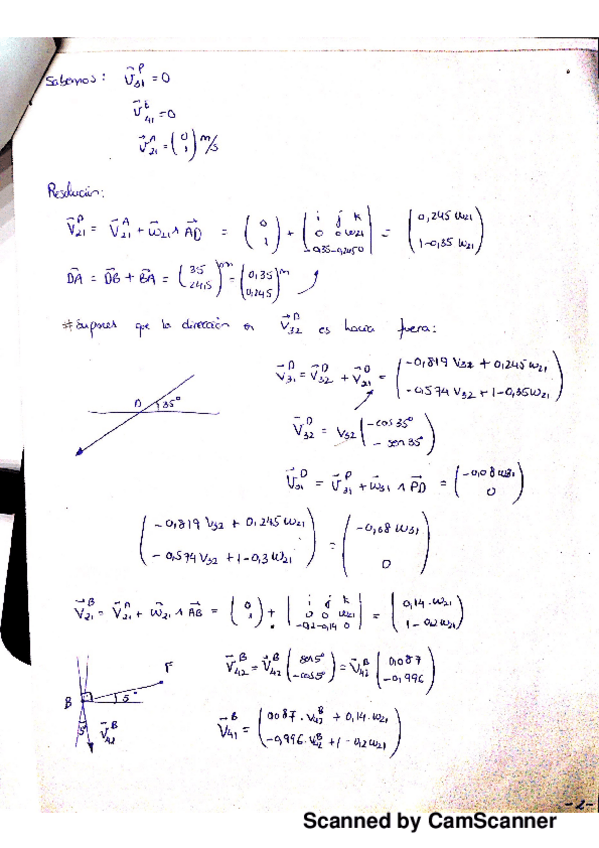 Sabemos: V⃗₃₁ᴾ = 0
V⃗₄₁ᴮ = 0
V⃗₂₁ᴬ = (0 1) m/s
Resolución:
V⃗₂₁ᴰ = V⃗₂₁ᴬ + ω⃗₂₁ ∧ AD = (0 1) + |i j k / 0 0 ω₂₁ / -0,35 -0,245 0| = (0,245 ω₂₁ / 1-0,35 ω₂₁)
DA = DB + BA = (35 / 24,5) = (0,35 / 0,245) m
que la dirección V⃗₃₂ᴰ es hacia fuera:
V⃗₃₁ᴰ = V⃗₃₂ᴰ + V⃗₂₁ᴰ = (-0,819 V₃₂ + 0,245 ω₂₁ / -0,574 V₃₂ + 1-0,35 ω₂₁)
D 35°
V⃗₃₂ᴰ = V₃₂ (-cos 35° / -sen 35°)
V⃗₃₁ᴰ = V⃗₃₁ᴾ + ω⃗₃₁ ∧ PD = (-0,08 ω₃₁ / 0)
(-0,819 V₃₂ + 0,245 ω₂₁ / -0,574 V₃₂ + 1-0,3 ω₂₁) = (-0,08 ω₃₁ / 0)
V⃗₂₁ᴮ = V⃗₂₁ᴬ + ω⃗₂₁ ∧ AB = (0 1) + |i j k / 0 0 ω₂₁ / -0,2 -0,14 0| = (0,14·ω₂₁ / 1-0,2 ω₂₁)
F
B 5°
5° V⃗₄₂ᴮ
V⃗₄₂ᴮ = V⃗₄₂ᴮ (sen 5° / -cos 5°) = V⃗₄₂ᴮ (0,087 / -0,996)
V⃗₄₁ᴮ = (0087·V₄₂ᴮ + 0,14·ω₂₁ / -0,996·V₄₂ᴮ + 1-0,2 ω₂₁)
-2-
Scanned by CamScanner